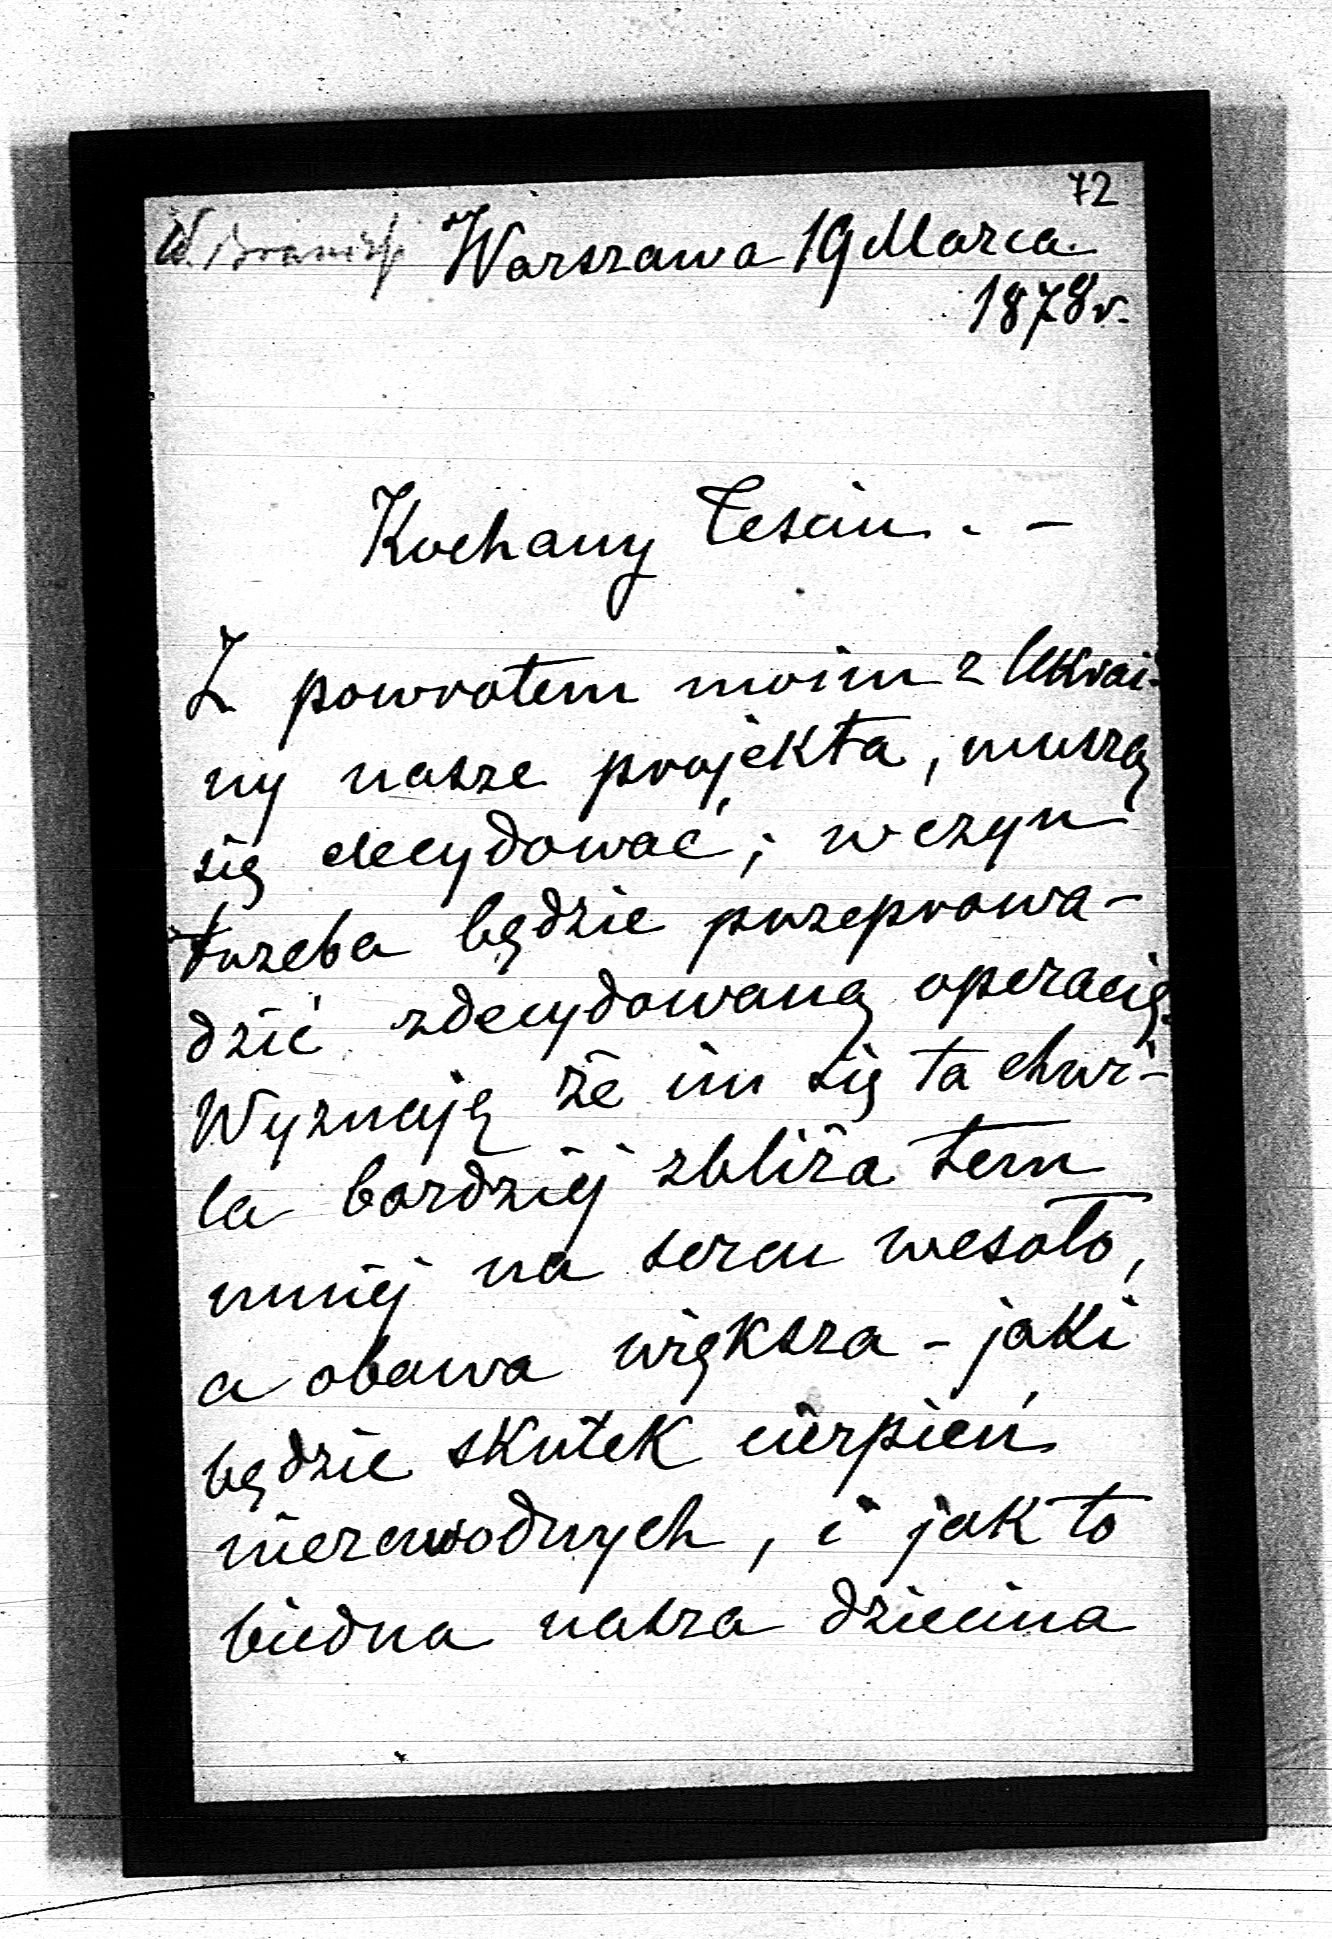 72
W. Branicki Warszawa 19 Marca
1878 r.
Kochany Teściu. -
Z powrotem moim z Ukrai-
ny nasze projekta, muszą
się decydować; w czyn
trzeba będzie przeprowa-
dzić zdecydowaną operacię.
Wyznaję że im się ta chwi-
la bardziej zbliża tem
mniej na sercu wesoło,
a obawa większa - jaki
będzie skutek cierpień
niezawodnych, i jak to
biedna nasza dziecina